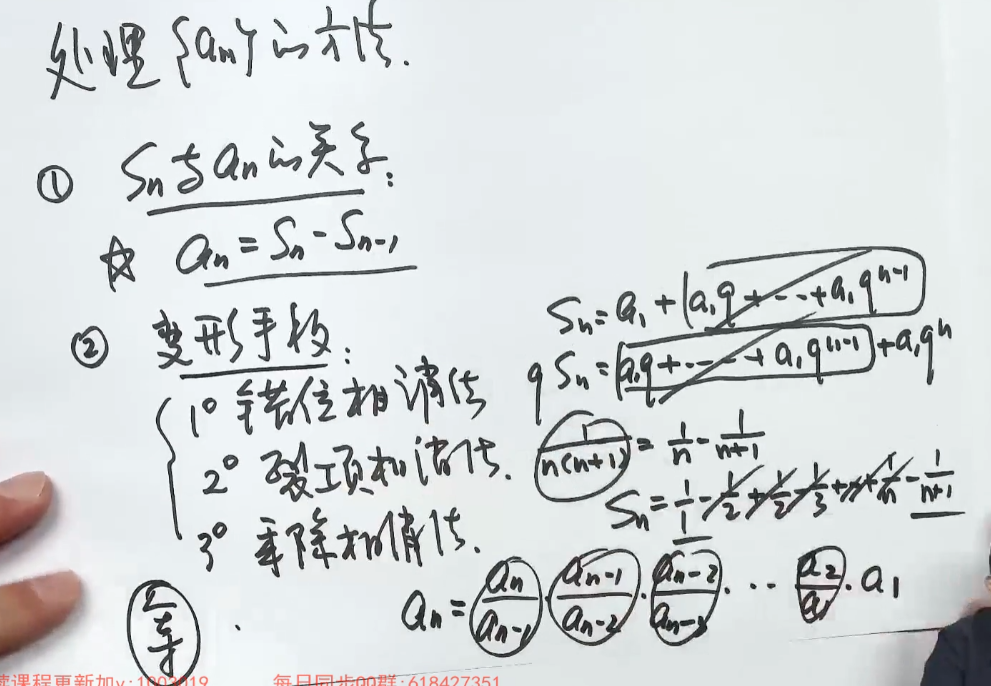 处理{an}的方法.
① Sn与an的关系:
☆ an = Sn - Sn-1
② 变形手段:
1° 错位相消法
2° 裂项相消法.
3° 乘除相消法.
Sn = a1 + (a1q + --- + a1q^n-1
qSn = (a1q + --- + a1q^n-1) + a1q^n
1/n(n+1) = 1/n - 1/n+1
Sn = 1/1 - 1/2 + 1/2 - 1/3 + … + 1/n - 1/n+1
an = an/an-1 · an-1/an-2 · an-2/an-3 · ··· a2/a1 · a1
每日同步QQ群:618427351